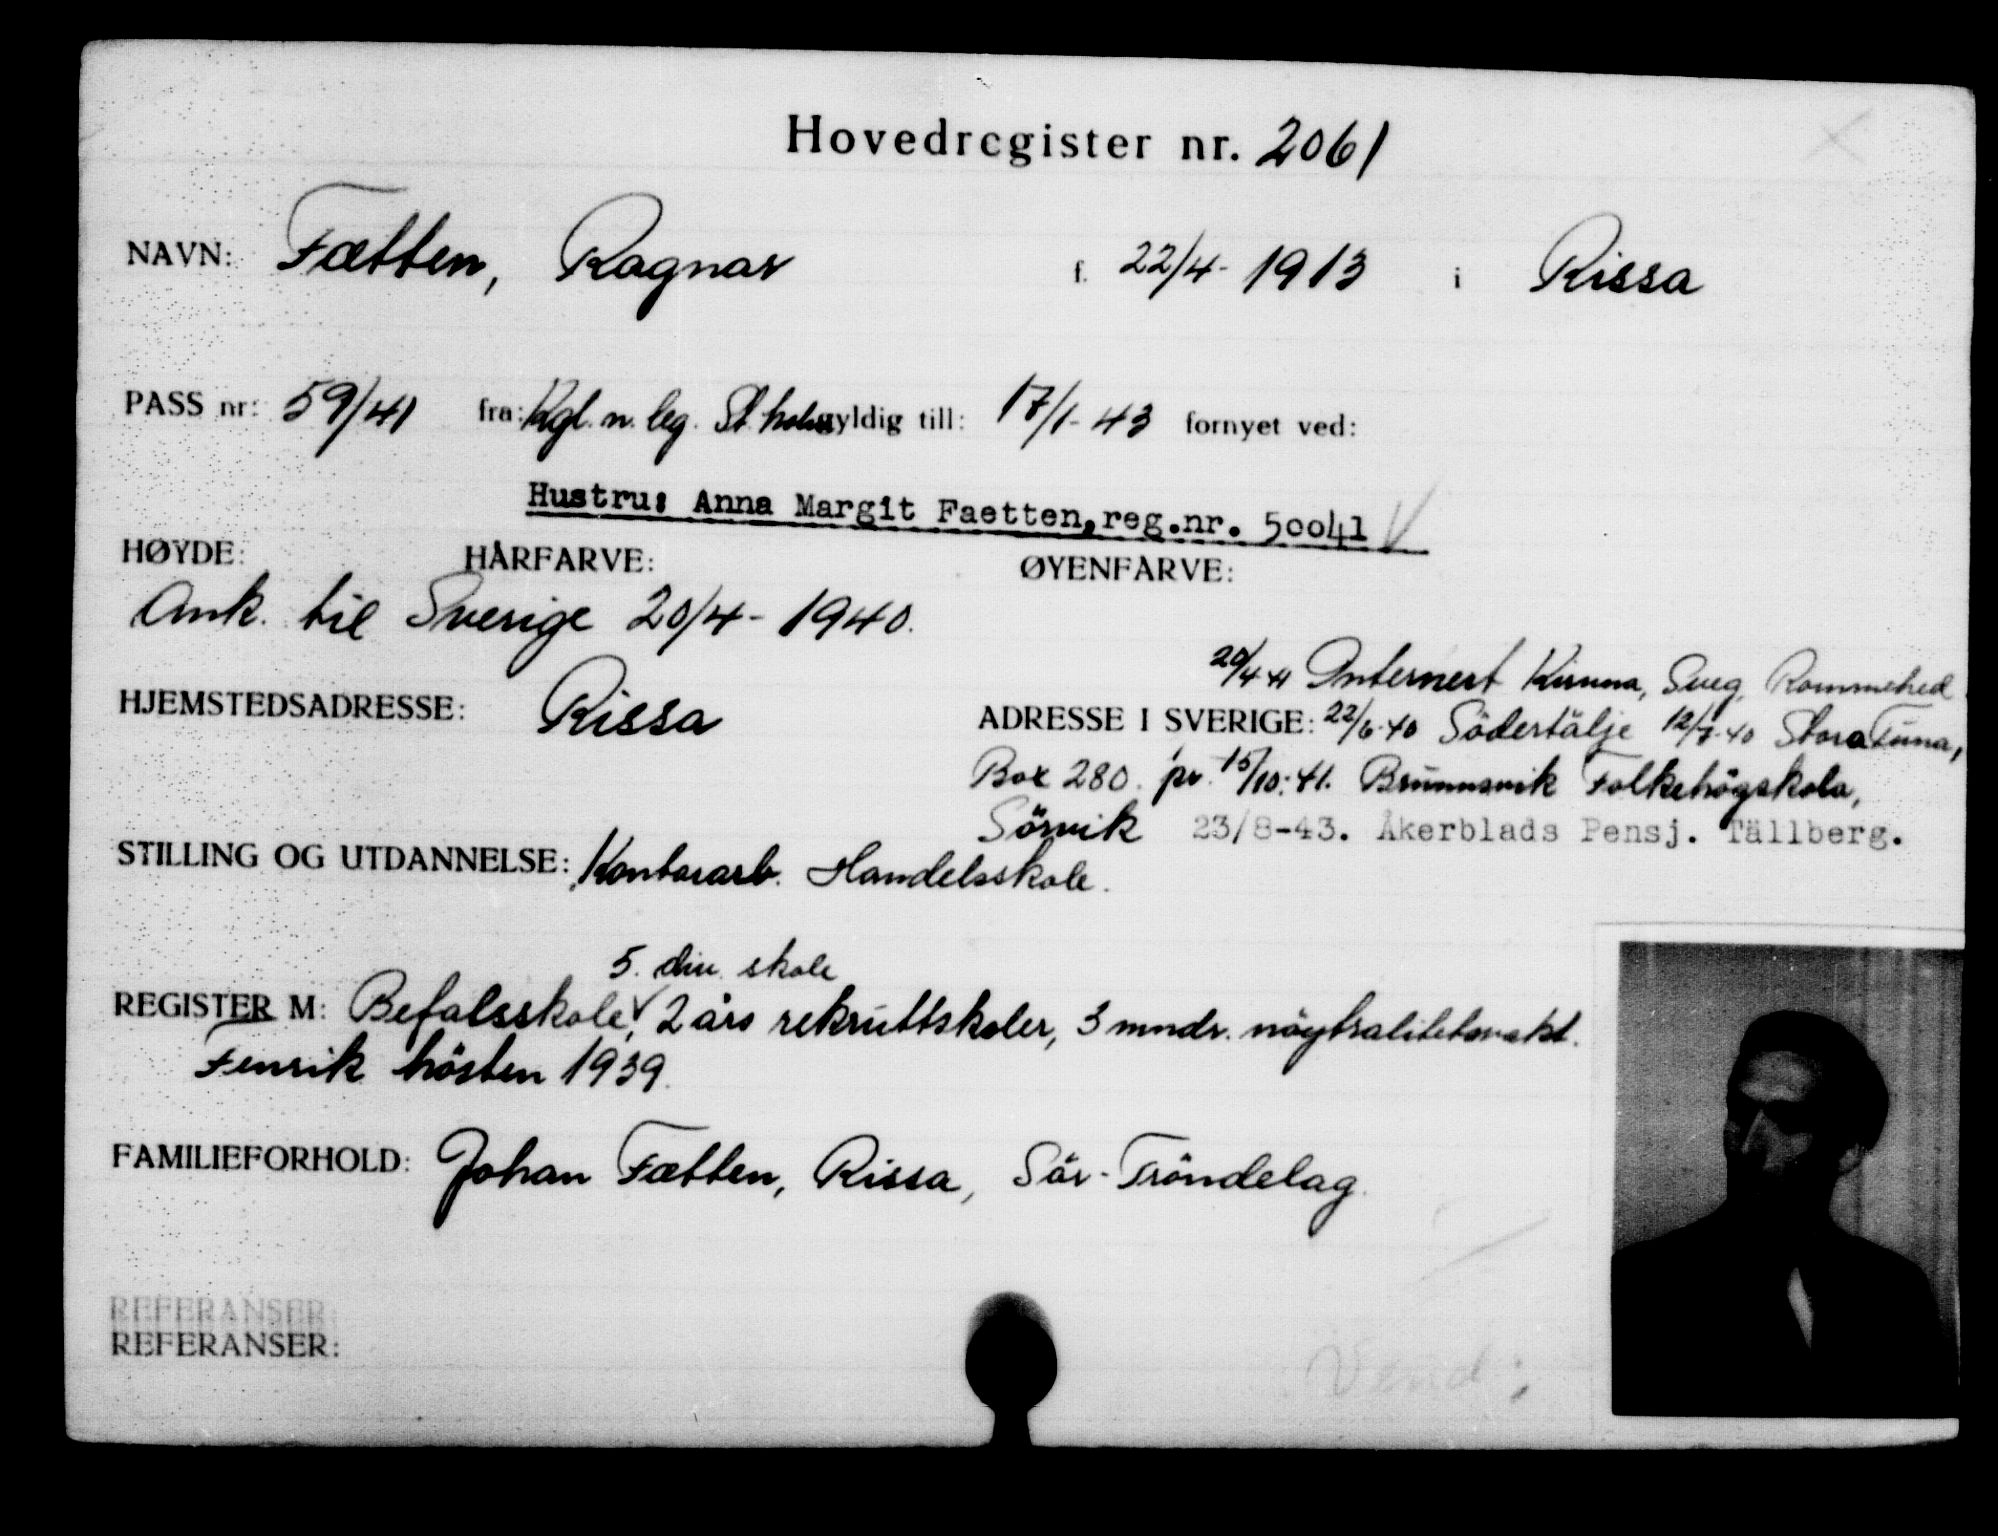 Hovedregister nr. 2061
NAVN: Fætten, Ragnar f. 22/4-1913 i Rissa
PASS nr: 59/41 fra: Kgl. n. leg. St.holm gyldig till: 17/1-43 fornyet ved:
Hustru: Anna Margit Faetten, reg.nr. 50041 V
HØYDE: HÅRFARVE: ØYENFARVE:
Ank. til Sverige 20/4-1940.
20/4 Internert Kiruna, Sveg, Rommehed
HJEMSTEDSADRESSE: Rissa ADRESSE I SVERIGE: 22/6-40 Södertälje 12/7-40 Stora Tuna,
Box 280. pr. 15/10-41. Brunnsvik Folkehögskola,
Sörvik 23/8-43. Åkerblads Pensj. Tällberg.
STILLING OG UTDANNELSE: Kontorarb. Handelsskole.
5. div. skole
REGISTER M: Befalsskole, 2 års rekruttskoler, 3 mndr. nöytralitetsvakt.
Fenrik hösten 1939.
FAMILIEFORHOLD: Johan Fætten, Rissa, Sör-Tröndelag.
REFERANSER:
REFERANSER:
Vend: